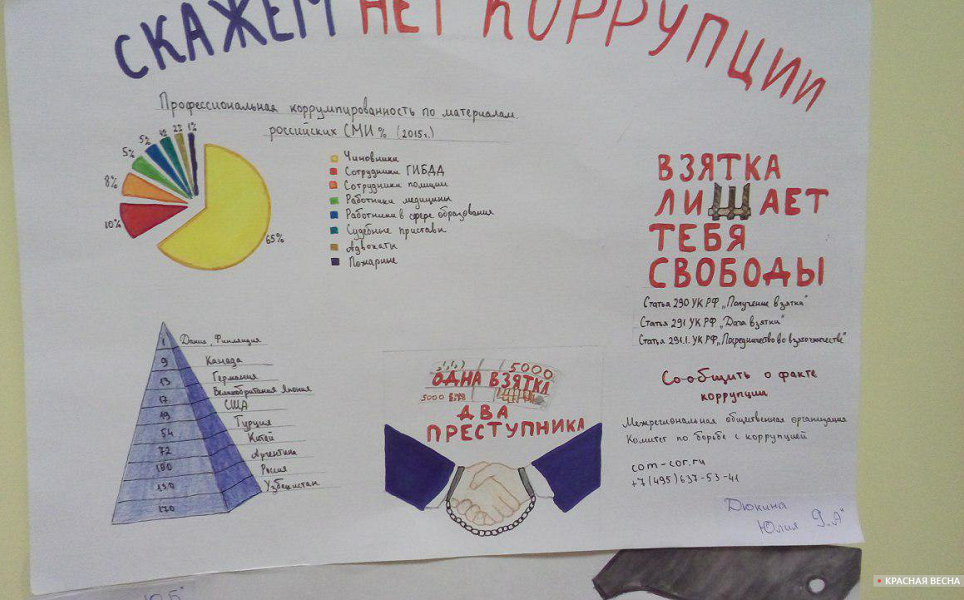 СКАЖЕМ НЕТ КОРРУПЦИИ
Профессиональная коррумпированность по материалам
российских СМИ % (2015г.)
1%
5%
5%
8%
10%
65%
Чиновники
Сотрудники ГИБДД
Сотрудники полиции
Работники медицины
Работники в сфере образования
Судебные приставы
Адвокаты
Пожарные
ВЗЯТКА
ЛИШАЕТ
ТЕБЯ
СВОБОДЫ
Статья 290 УК РФ „Получение взятки"
Статья 291 УК РФ „Дача взятки"
Статья 291.1. УК РФ „Посредничество во взяточничестве"
Сообщить о факте
коррупции
Межрегиональная общественная организация
Комитет по борьбе с коррупцией
com-cor.ru
+7(495)637-53-41
Дюкина
Юлия 9„А"
1 Дания, Финляндия
9 Канада
13 Германия
17 Великобритания Япония
19 США
54 Турция
72 Китай
100 Аргентина
130 Россия
170 Узбекистан
5000
ОДНА ВЗЯТКА
5000
ДВА
ПРЕСТУПНИКА
КРАСНАЯ ВЕСНА